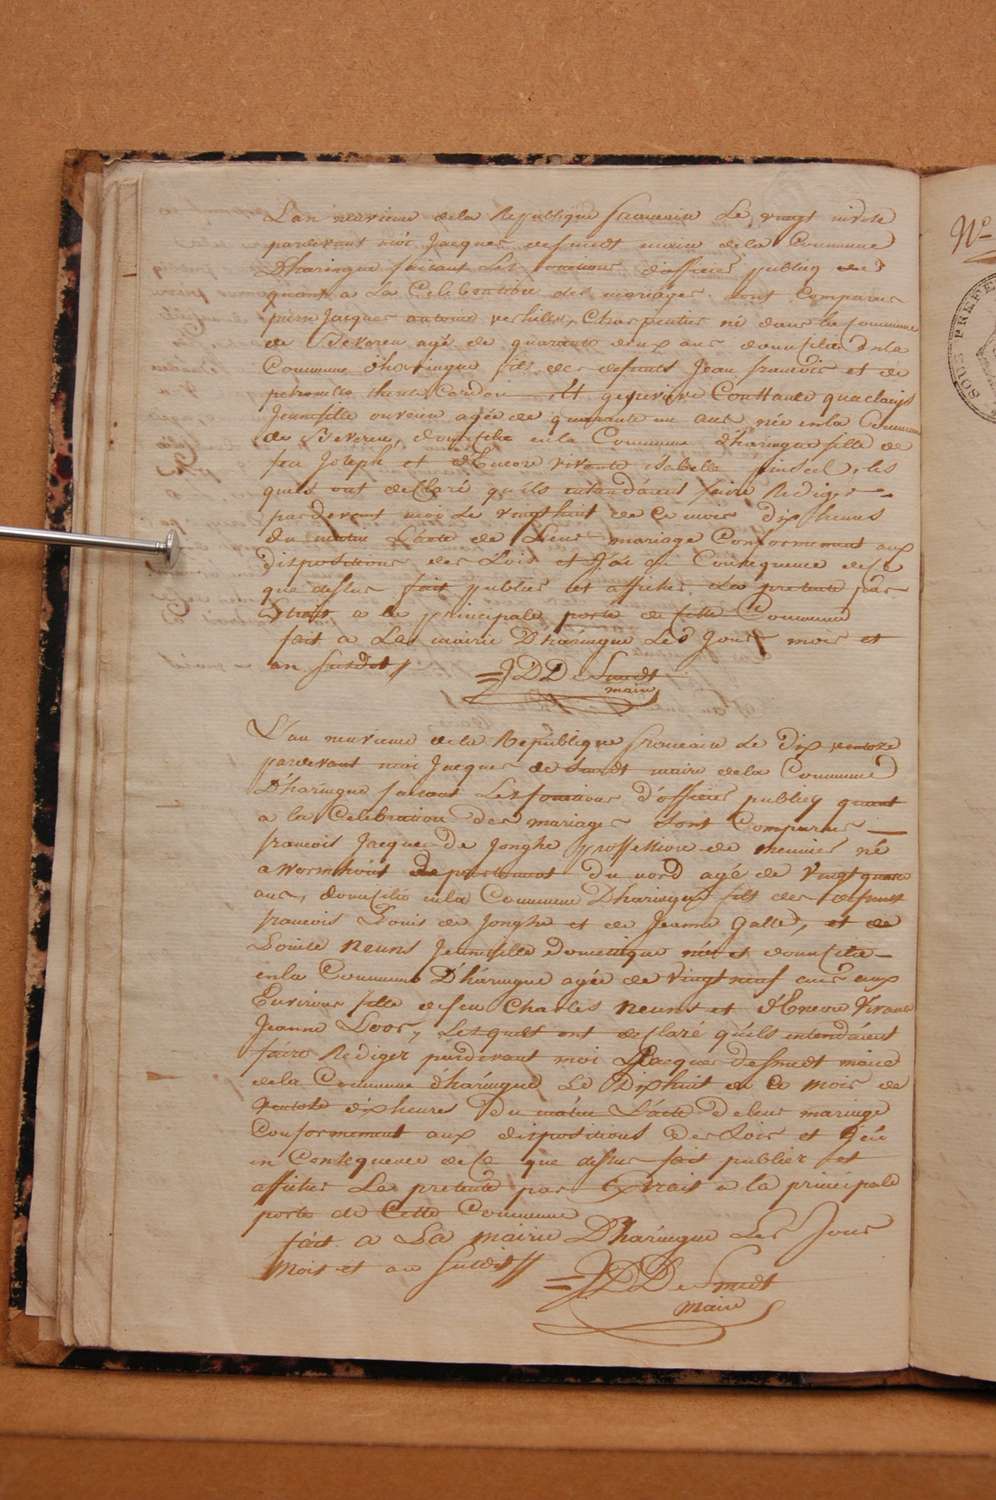 L'an neuvieme de la Republique francaise Le vingt nivose
pardevant moi Jacques desmedt maire de la Commune
D'haringue faisant Les fonctions d'officier publicq
quant a La Celebration des mariages sont Comparus
pierre Jacques antoine verhille, Charpentier né dans la Commune
de Beveren agé de quarante deux ans domicilié en la
Commune d'haringue fils des defunts Jean francois et de
petronille therese Cardon et genevieve Constance quaclaeijs
Jeunefille ouvriere agée de quarante un ans née en la Commune
de Beveren, domicilié en la Commune d'haringue fille de
feu Joseph et d'Encore vivante isabelle les
quels ont declaré qu'ils intendaient faire Rediger
pardevant moi Le vingthuit de ce mois Dix heures
du matin L'acte de Leur mariage Conformement aux
dispositions des Lois et J'ai en Consequence de ce
que dessus fait publier et afficher La presente par
Extrait a la principale porte de cette Commune
fait a La mairie D'haringue Les Jour mois et
an susdit //
= J D De Smedt
maire
L'an neuvieme de la Republique francaise Le dix ventose
pardevant moi Jacques de Smedt maire de la Commune
D'haringue faisant Les fonctions d'officier publicq quant
a la Celebration des mariages sont Comparus
francois Jacques De Jonghe proffession de meunier né
a Wormhout departement du nord agé de vingt quatre
ans, domicilié en la Commune D'haringue fils des defunts
francois Louis de Jonghe et de Jeanne Galle, et de
Louise neuns Jeunefille Domestique née et domicilie
en la Commune D'haringue agée de vingt neuf ans aux
Environs fille de feu Charles neuns et d'Encore Vivante
Jeanne Loor, Lesquels ont declaré qu'ils intendaient
faire Rediger pardevant moi Jacques Desmedt maire
de la Commune d'haringue Le Dixhuit de ce mois de
ventose dix heures du matin L'acte de leur mariage
Conformement aux dispositions des Lois et J'ai
en Consequence de ce que dessus fait publier et
afficher La presente par Extrait a la principale
porte de Cette Commune
fait a La mairie D'haringue Les Jour
mois et an susdit //
= J D De Smedt
maire
Nº
SOUS PREFE